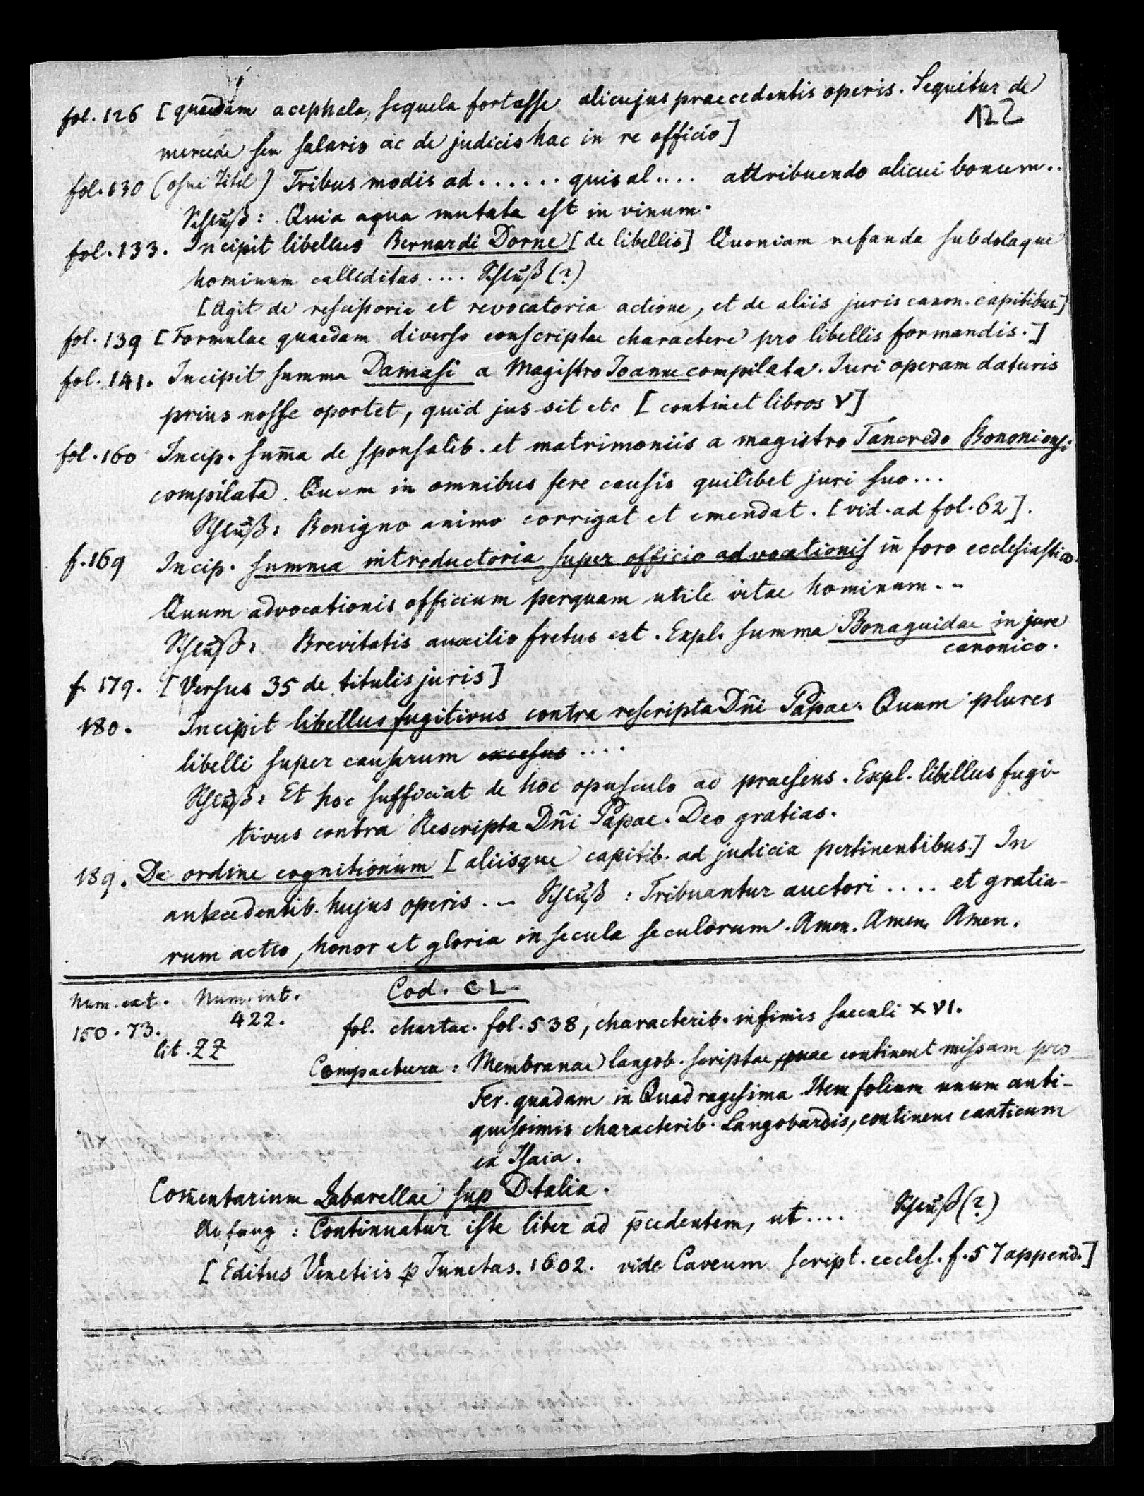 fol. 126 [quaedam acephela, sequela fortasse alicujus praecedentis operis. Sequitur de
122
mercede seu salario ac de judicis hac in re officio]
fol. 130 (ohne Titel) Tribus modis ad...... quis al.... attribuendo alicui bonum..
Schluß: Quia aqua mutata est in vinum.
fol. 133. Incipit libellus Bernardi Dorne [de libellis] Quoniam nefanda subdolaque
hominum calleditas .... Schluß (?)
[Agit de rescissoria et revocatoria actione, et de aliis juris canon. capitibus]
fol. 139 [Formulae quaedam diverso conscriptae charactere pro libellis formandis.]
fol. 141. Incipit summa Damasi a Magistro Joanne compilata. Juri operam daturis
prius nosse oportet, quid jus sit etc [continet libros V]
fol. 160 Incip. sum̄a de sponsalib. et matrimoniis a magistro Tancredo Bononiensi
compilata. Quum in omnibus fere causis quilibet juri suo...
Schluß: Benigno animo corrigat et emendat. [vid. ad fol. 62].
f. 169 Incip. summa introductoria super officio advocationis in foro ecclesiastico.
Quum advocationis officium perquam utile vitae hominum. –
Schluß: Brevitatis auxilio fretus est. Expl. summa Bonaguidae in jure
canonico.
f. 179. [Versus 35 de titulis juris]
180. Incipit libellus fugitivus contra rescripta Dn̄i Papae. Quum plures
libelli super causarum excessus ....
Schluß: Et hoc sufficiat de hoc opusculo ad praesens. Expl. libellus fugi-
tivus contra Rescripta Dn̄i Papae. Deo gratias.
189. De ordine cognitionum [aliisque capitib. ad judicia pertinentibus.] In
antecedentib. hujus operis. – Schluß: Tribuantur auctori .... et gratia-
rum actio, honor et gloria in secula seculorum. Amen. Amen. Amen.
Num. ext. Num. int. Cod. CL
150. 73. 422. fol. chartac. fol. 538, characterib. infimis saeculi XVI.
lit. ZZ
Compactura: Membranae langob. scriptae, quae continent missam pro
Fer. quadam in Quadragesima Item folium unum anti-
quissimis characterib. Langobardis, continens canticum
ex Isaia.
Com̄entarium Zabarellae sup D-talia.
Anfang: Continuatur iste liter ad p̄cedentem, ut .... Schluß (?)
[Editus Venetiis p Junctas. 1602. vide Caveum script. eccles. f. 57 append.]